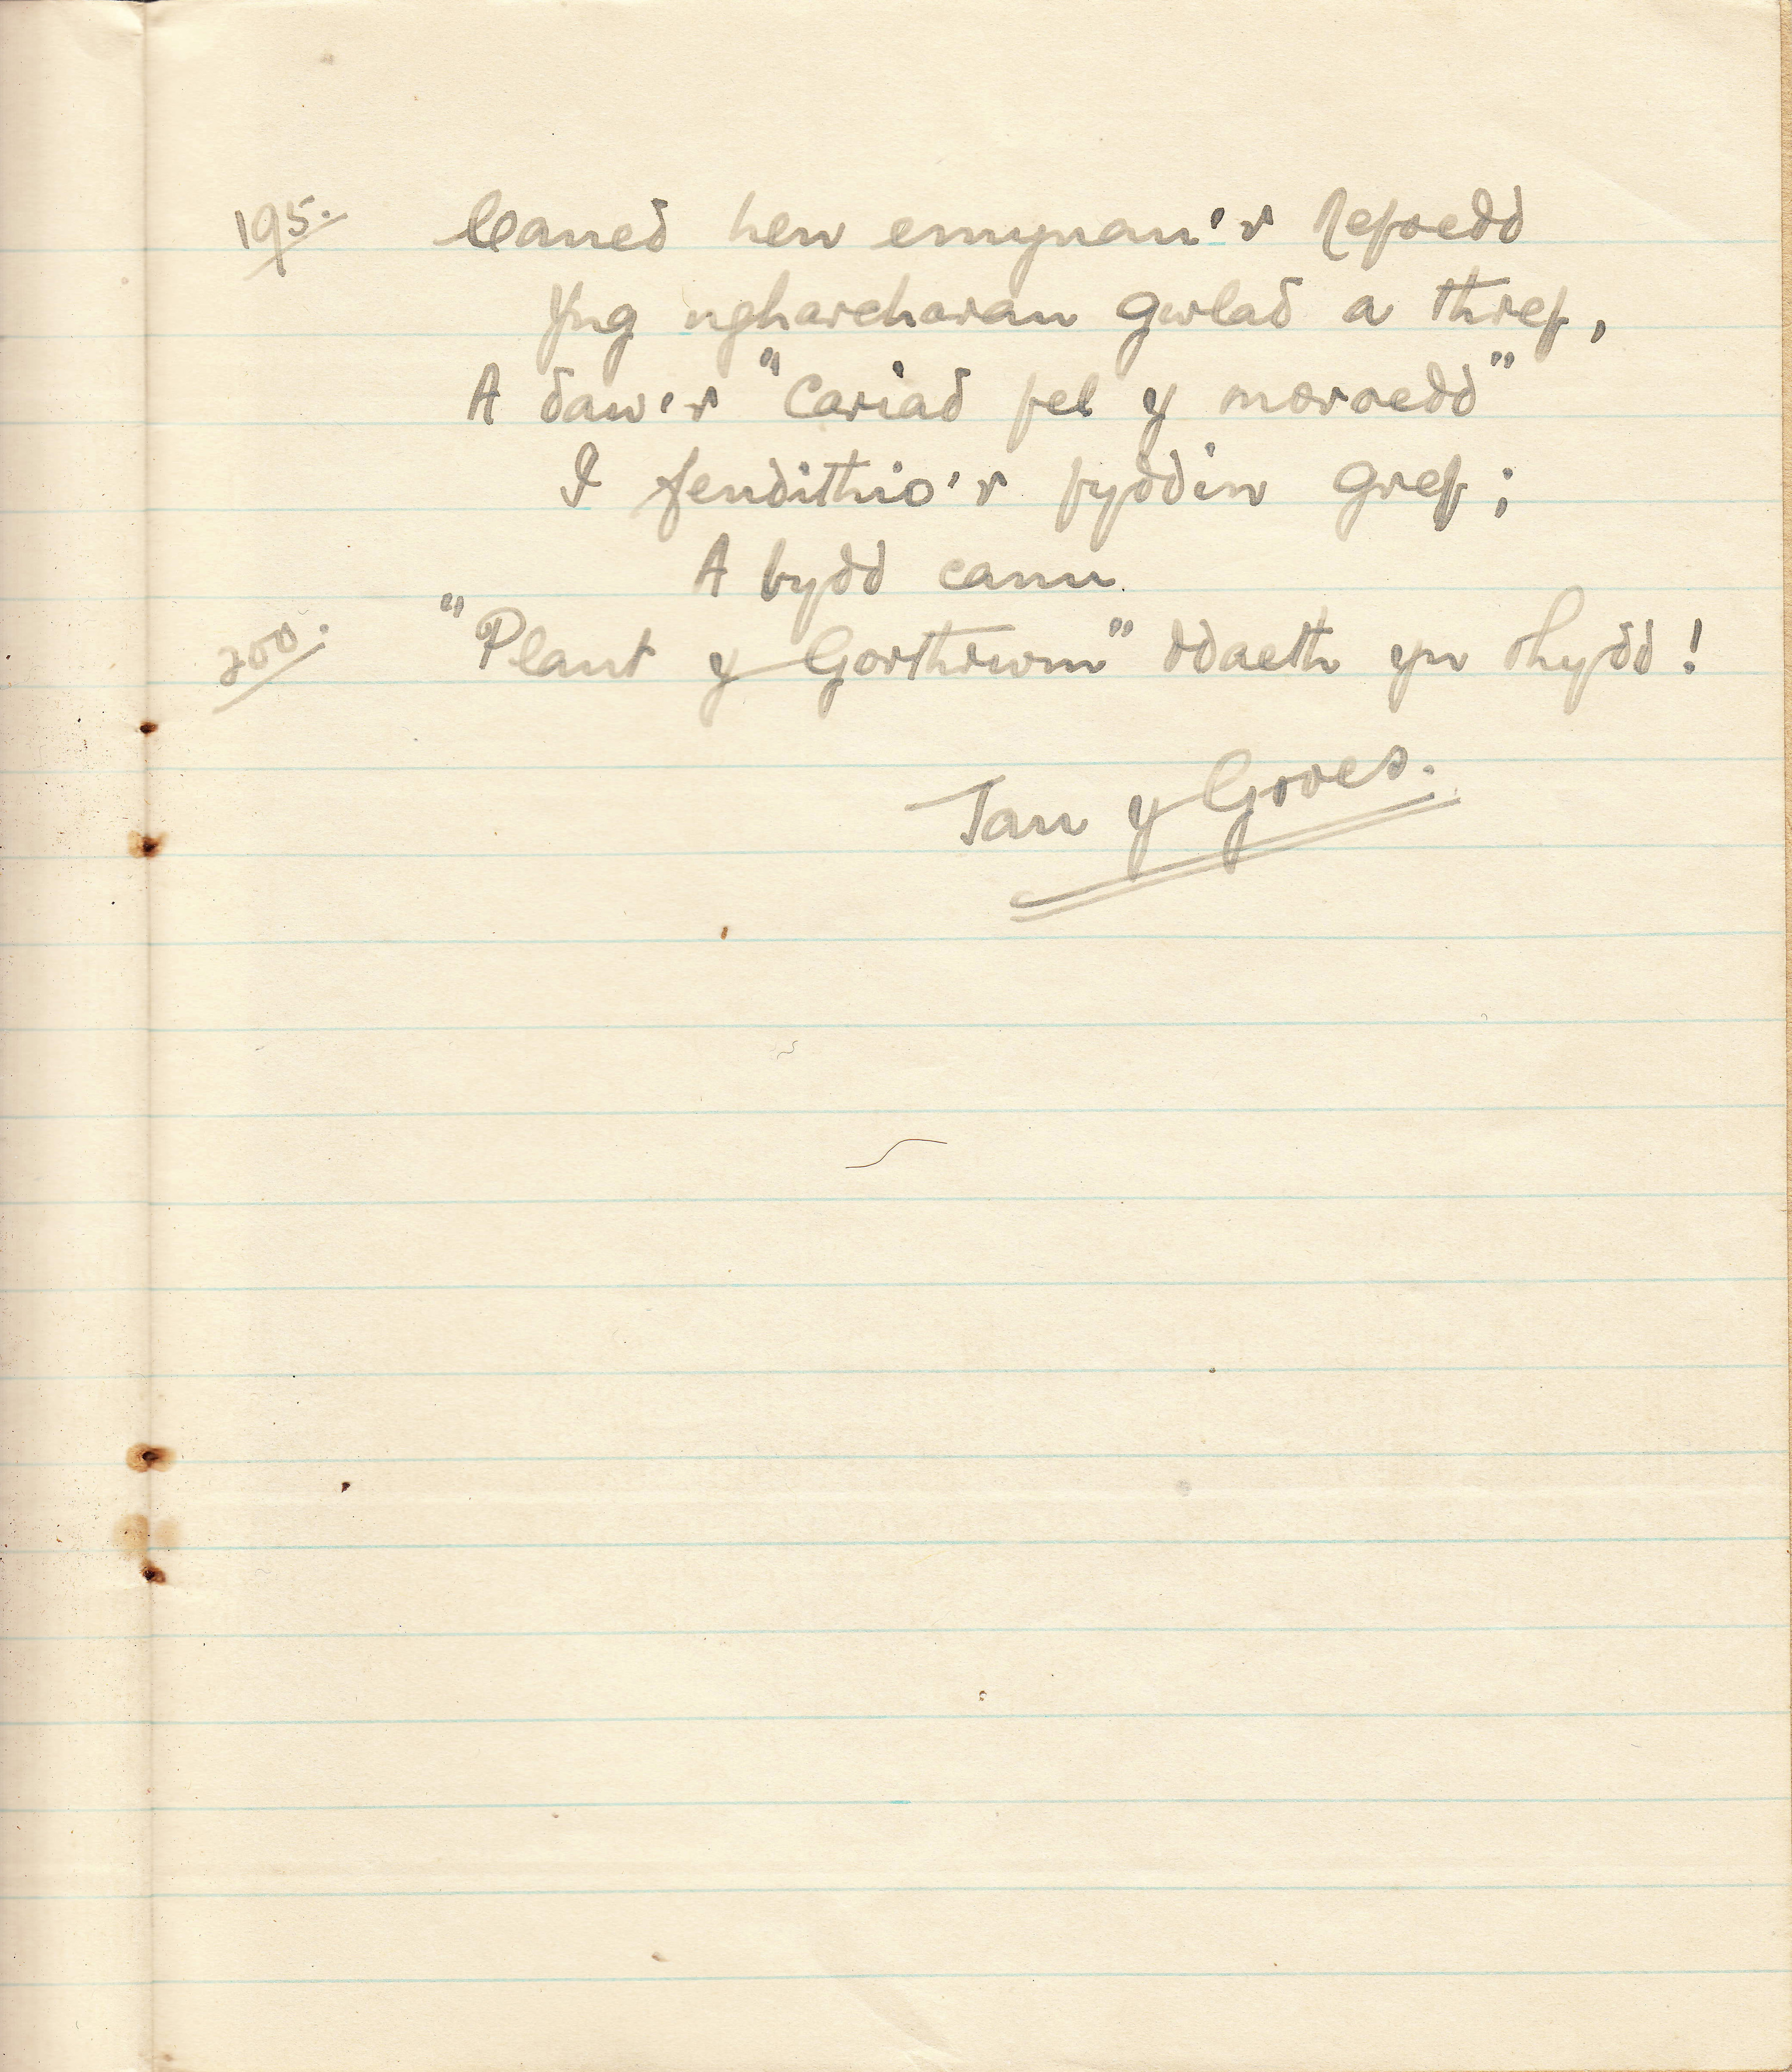 195. Caned hen emynau'r Nefoedd
Yng ngharcharau gwlad a thref,
A daw'r "Cariad fel y moroedd"
I fendithio'r fyddin gref;
A bydd canu
200. "Plant y Gorthrwm" ddaeth yn rhydd!
Tan y Groes.